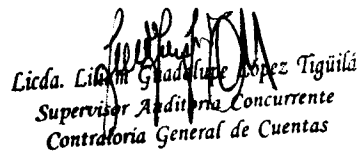 Licda. Lilian Guadalupe López Tigüilá
Supervisor Auditoria Concurrente
Contraloria General de Cuentas